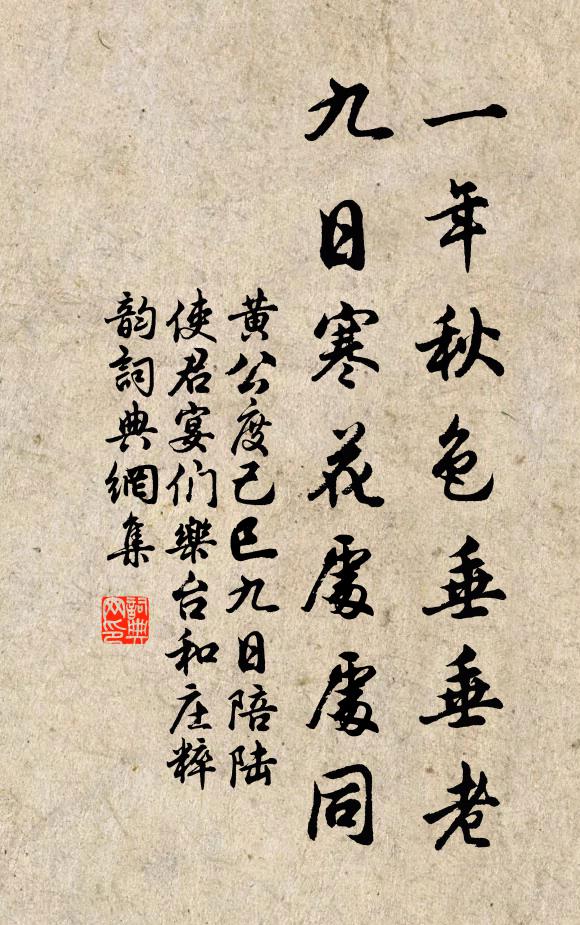 一年秋色垂垂老
九日寒花處處同
黄公度己巳九日陪陆
使君宴们樂台和庄粹
韵詞典網集
詞典
网印